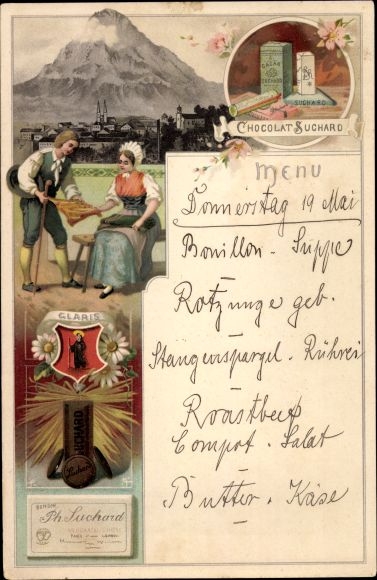 CACAO
SUCHARD
SUCHARD
CHOCOLAT SUCHARD
MENU
Donnerstag 19 Mai
Bouillon - Suppe
Rotzunge geb.
Stangenspargel - Rührei
Roastbeef
Compot - Salat
Butter - Käse
GLARIS
SUCHARD
Suchard
BONBON
Ph. Suchard